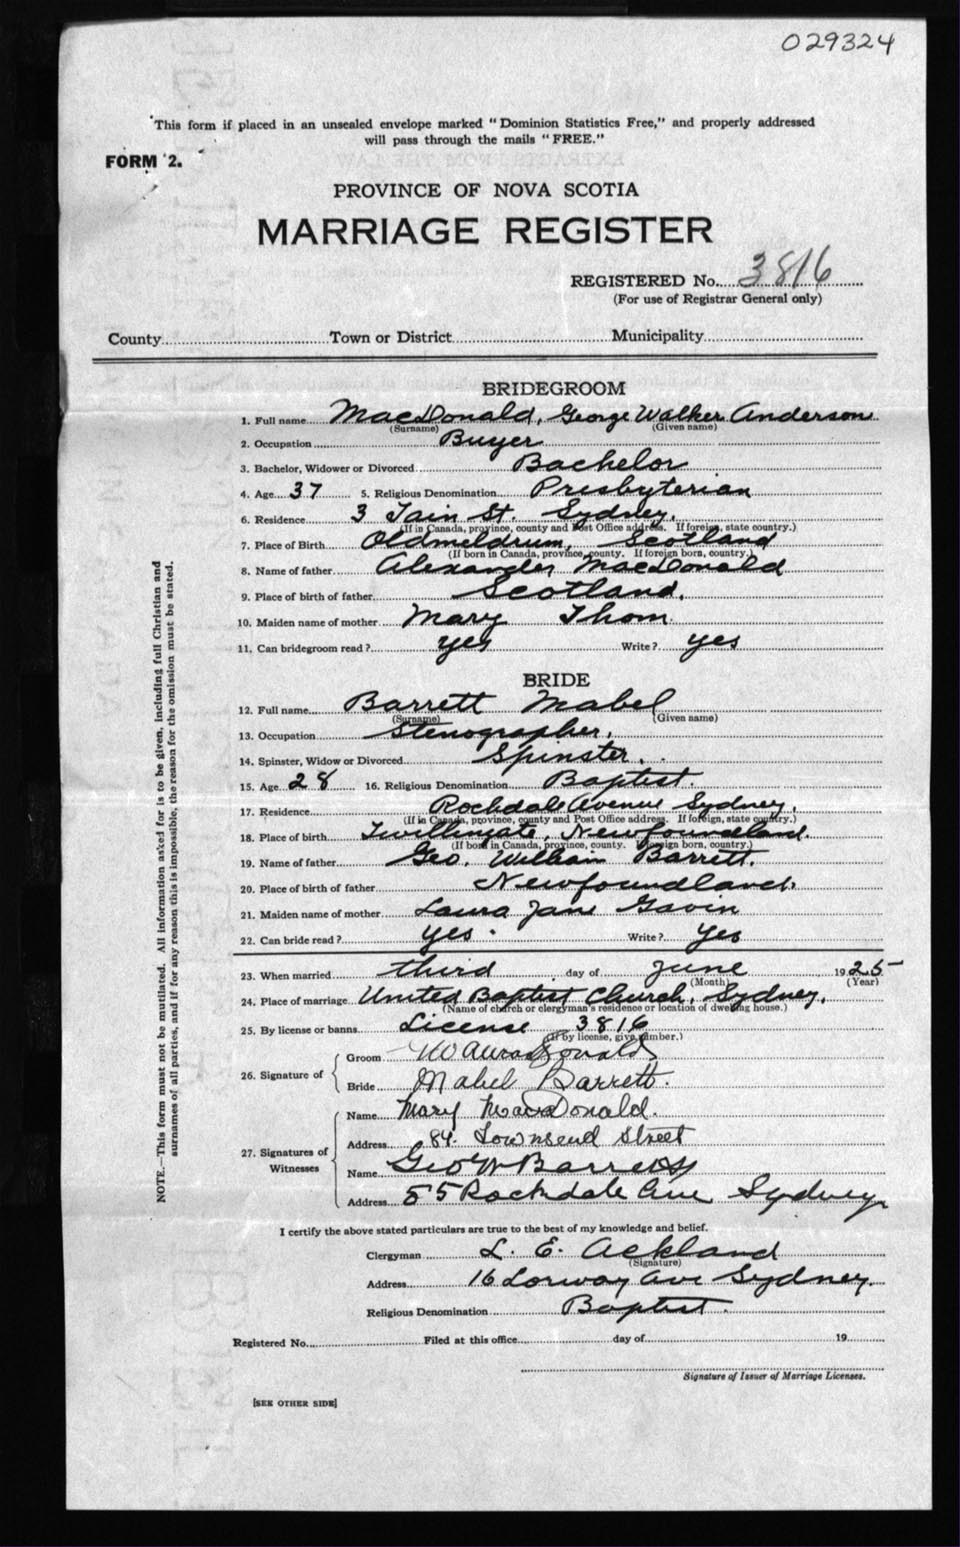 029324
This form if placed in an unsealed envelope marked "Dominion Statistics Free," and properly addressed
will pass through the mails "FREE."
FORM 2.
PROVINCE OF NOVA SCOTIA
MARRIAGE REGISTER
REGISTERED No. 3816
(For use of Registrar General only)
County Town or District Municipality
BRIDEGROOM
1. Full name MacDonald, George Walker Anderson
(Surname) (Given name)
2. Occupation Buyer
3. Bachelor, Widower or Divorced Bachelor
4. Age 37 5. Religious Denomination Presbyterian
6. Residence 3 Tain St. Sydney.
(If in Canada, province, county and Post Office address. If foreign, state country.)
7. Place of Birth Oldmeldrum, Scotland
(If born in Canada, province, county. If foreign born, country.)
8. Name of father Alexander MacDonald
9. Place of birth of father Scotland.
10. Maiden name of mother Mary Thom
11. Can bridegroom read? yes Write? yes
BRIDE
12. Full name Barrett Mabel
(Surname) (Given name)
13. Occupation Stenographer.
14. Spinster, Widow or Divorced Spinster.
15. Age 28 16. Religious Denomination Baptist.
17. Residence Rockdale Avenue Sydney.
(If in Canada, province, county and Post Office address. If foreign, state country.)
18. Place of birth Twillingate, Newfoundland.
(If born in Canada, province, county. If foreign born, country.)
19. Name of father Geo. William Barrett.
20. Place of birth of father Newfoundland.
21. Maiden name of mother Laura Jane Gavin
22. Can bride read? yes. Write? yes
23. When married third day of June 1925
(Month) (Year)
24. Place of marriage United Baptist Church, Sydney.
(Name of church or clergyman's residence or location of dwelling house.)
25. By license or banns License 3816
(If by license, give number.)
26. Signature of Groom
Bride Mabel Barrett.
27. Signatures of Witnesses
Name Mary MacDonald.
Address 84. Townsend Street
Name Geo W Barrett
Address 55 Rockdale Ave Sydney
I certify the above stated particulars are true to the best of my knowledge and belief.
Clergyman L. E. Ackland
(Signature)
Address 16 Lorway Ave Sydney.
Religious Denomination Baptist.
Registered No. Filed at this office day of 19
Signature of Issuer of Marriage Licenses.
[SEE OTHER SIDE]
NOTE.—This form must not be mutilated. All information asked for is to be given, including full Christian and
surnames of all parties, and if for any reason this is impossible, the reason for the omission must be stated.